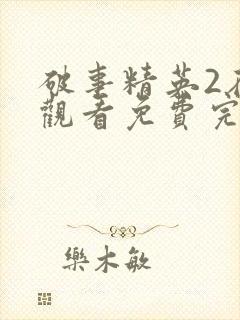 破事精英2在
觀看免費完
樂木敏